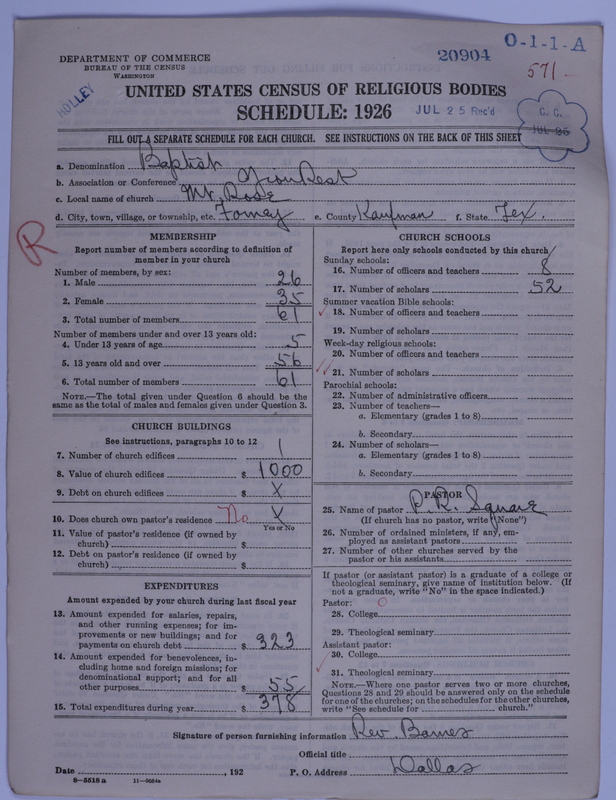 DEPARTMENT OF COMMERCE
BUREAU OF THE CENSUS
WASHINGTON
HOLLEY
20904
O-1-1-A
571
UNITED STATES CENSUS OF RELIGIOUS BODIES
SCHEDULE: 1926
JUL 25 Rec'd
C. C.
JUL 26
FILL OUT A SEPARATE SCHEDULE FOR EACH CHURCH. SEE INSTRUCTIONS ON THE BACK OF THIS SHEET
a. Denomination Baptist
b. Association or Conference Zion Rest
c. Local name of church Mt. Rose
d. City, town, village, or township, etc. Forney e. County Kaufman f. State Tex.
R
MEMBERSHIP
Report number of members according to definition of
member in your church
Number of members, by sex:
1. Male 26
2. Female 35
3. Total number of members 61
Number of members under and over 13 years old:
4. Under 13 years of age 5
5. 13 years old and over 56
6. Total number of members 61
NOTE.—The total given under Question 6 should be the
same as the total of males and females given under Question 3.
CHURCH BUILDINGS
See instructions, paragraphs 10 to 12
7. Number of church edifices 1
8. Value of church edifices $ 1000
9. Debt on church edifices $ X
10. Does church own pastor's residence No X
Yes or No
11. Value of pastor's residence (if owned by
church) $
12. Debt on pastor's residence (if owned by
church) $
EXPENDITURES
Amount expended by your church during last fiscal year
13. Amount expended for salaries, repairs,
and other running expenses; for im-
provements or new buildings; and for
payments on church debt $ 323
14. Amount expended for benevolences, in-
cluding home and foreign missions; for
denominational support; and for all
other purposes $ 55
15. Total expenditures during year $ 378
CHURCH SCHOOLS
Report here only schools conducted by this church
Sunday schools:
16. Number of officers and teachers 8
17. Number of scholars 52
Summer vacation Bible schools:
18. Number of officers and teachers
19. Number of scholars
Week-day religious schools:
20. Number of officers and teachers
21. Number of scholars
Parochial schools:
22. Number of administrative officers
23. Number of teachers—
a. Elementary (grades 1 to 8)
b. Secondary
24. Number of scholars—
a. Elementary (grades 1 to 8)
b. Secondary
PASTOR
25. Name of pastor P. R. Square
(If church has no pastor, write "None")
26. Number of ordained ministers, if any, em-
ployed as assistant pastors
27. Number of other churches served by the
pastor or his assistants
If pastor (or assistant pastor) is a graduate of a college or
theological seminary, give name of institution below. (If
not a graduate, write "No" in the space indicated.)
Pastor: O
28. College
29. Theological seminary
Assistant pastor:
30. College
31. Theological seminary
NOTE.—Where one pastor serves two or more churches,
Questions 28 and 29 should be answered only on the schedule
for one of the churches; on the schedules for the other churches,
write "See schedule for church."
Signature of person furnishing information Rev Barnes
Official title
Date , 192 P. O. Address Dallas
8—5518 a 11—9054a